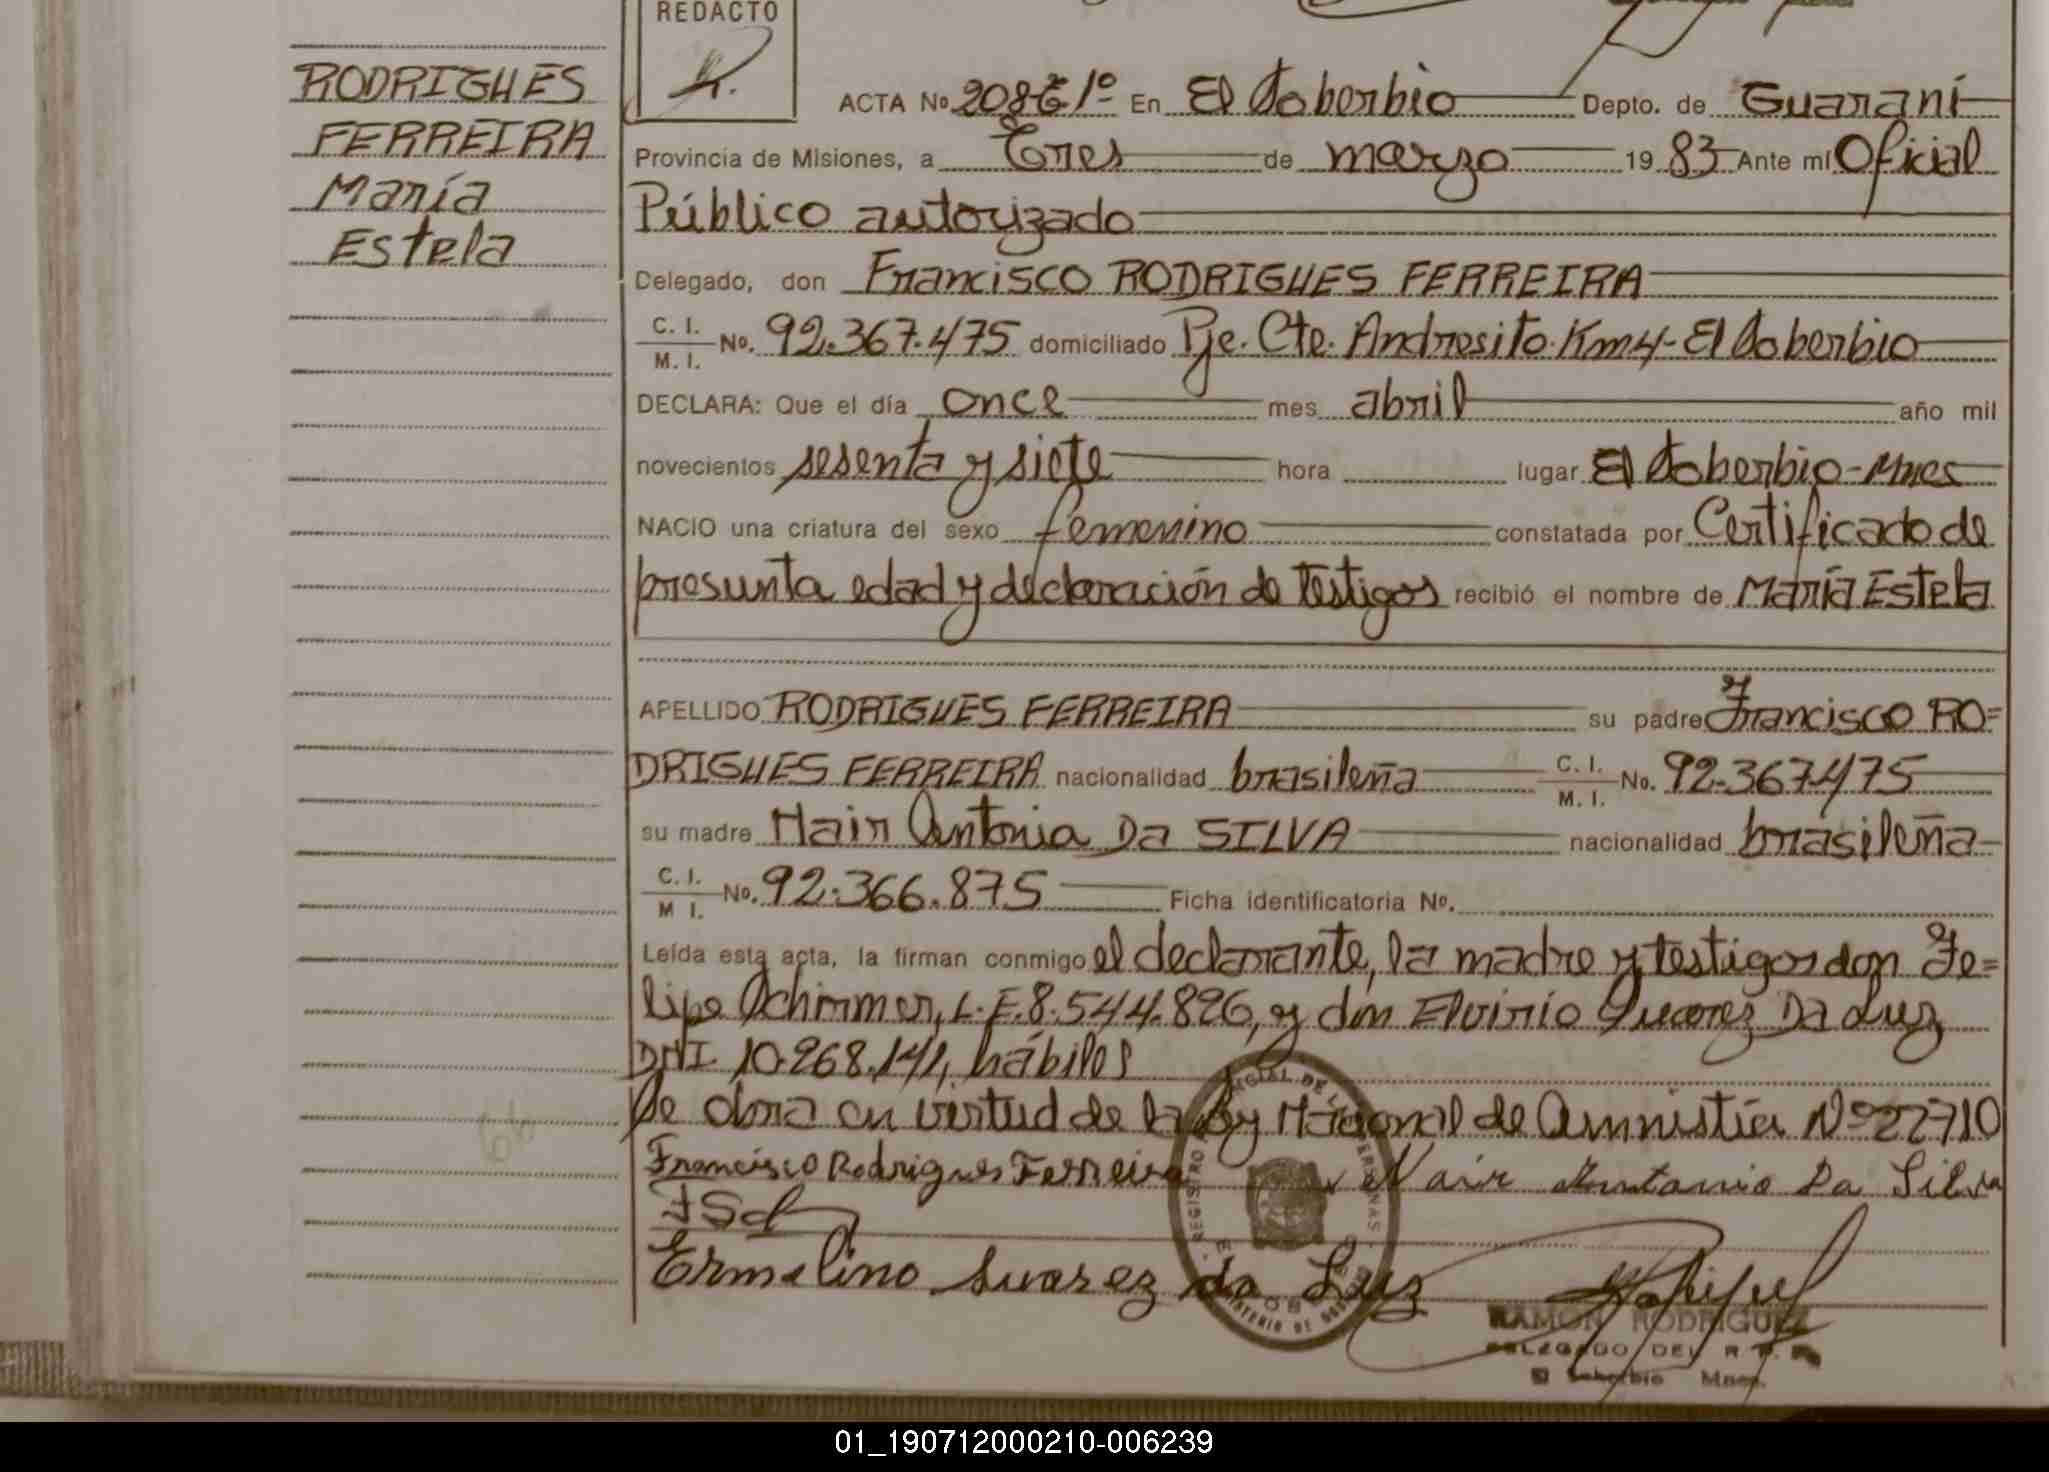 REDACTO
RODRIGUES
FERREIRA
María
Estela
ACTA No 208 Tº 1º En El Soberbio Depto. de Guaraní
Provincia de Misiones, a Tres de marzo 19 83 Ante mí Oficial
Público autorizado
Delegado, don Francisco RODRIGUES FERREIRA
C. I.
M. I. No. 92.367.475 domiciliado Pje. Cte. Andresito. Km 4- El Soberbio
DECLARA: Que el día once mes abril año mil
novecientos sesenta y siete hora lugar El Soberbio-Mnes
NACIO una criatura del sexo femenino constatada por Certificado de
presunta edad y declaración de testigos recibió el nombre de María Estela
APELLIDO RODRIGUES FERREIRA su padre Francisco RO=
DRIGUES FERREIRA nacionalidad brasileña C. I.
M. I. No. 92.367.475
su madre Nair Antonia Da SILVA nacionalidad brasileña
C. I.
M I. No. 92.366.875 Ficha identificatoria No.
Leída esta acta, la firman conmigo el declarante, la madre y testigos don Fe=
lipe Schirmer, L.E. 8.544.826, y don Elvirio Suarez Da Luz
DNI. 10.268.141, hábiles
Se obra en virtud de la Ley Nacional de Amnistía Nº 22710
Francisco Rodrigues Ferreira Nair Antonia Da Silva
Ermelino Suarez da Luz
RAMON RODRIGUEZ
DELEGADO DEL R. P. P.
El Soberbio Mnes.
01_190712000210-006239